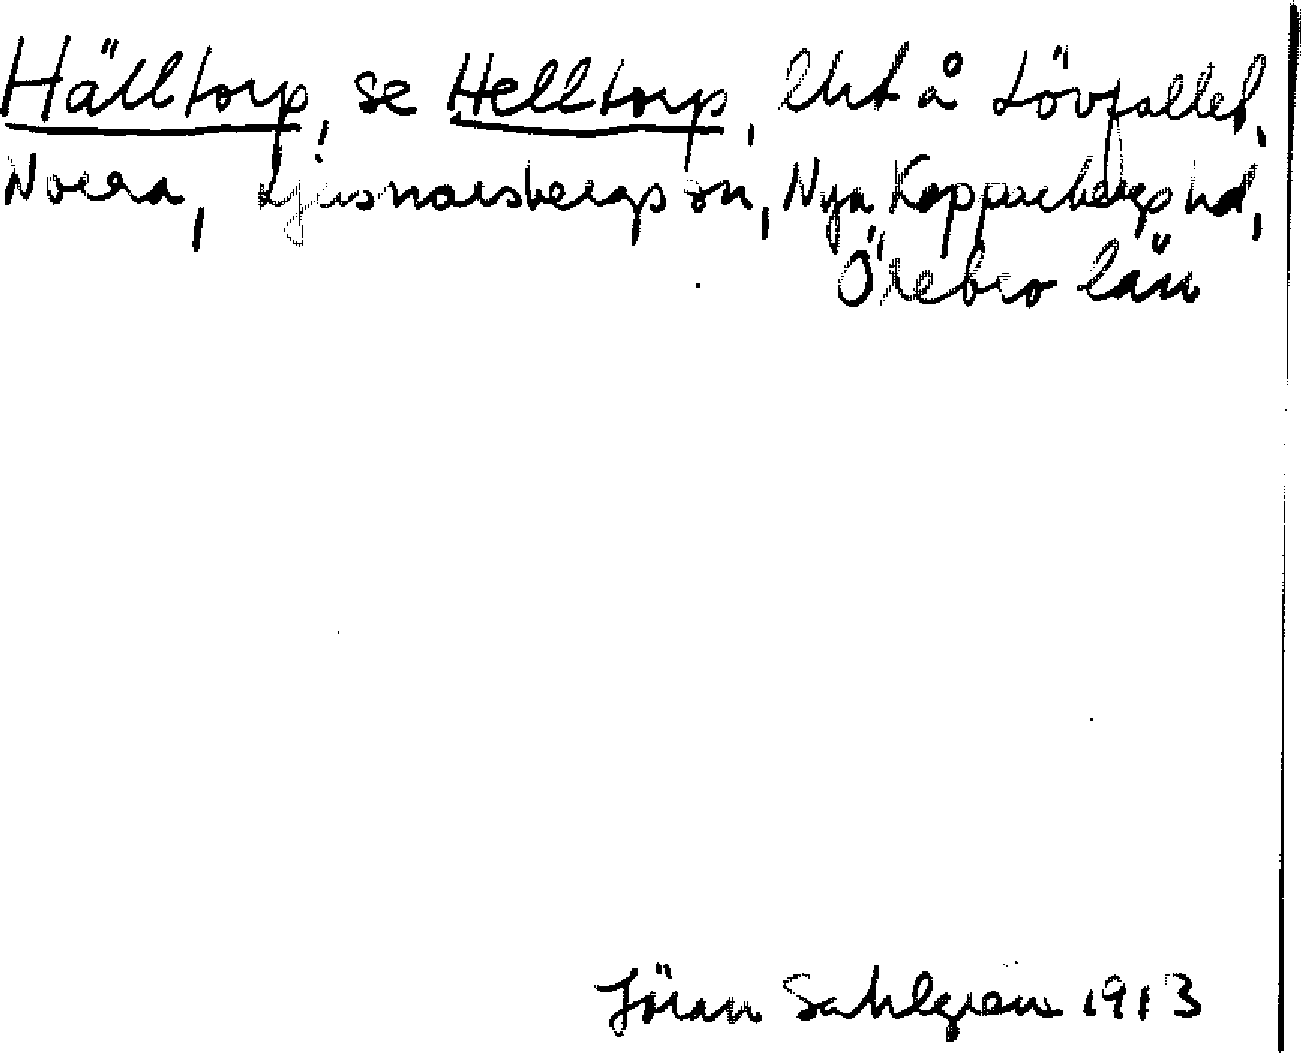 Hälltorp, se Helltorp, Uht å Lövfallet,
Norra, Ljusnarsbergs sn, Nya Kopparbergs hd,
Örebro län
Jöran Sahlgren 1913